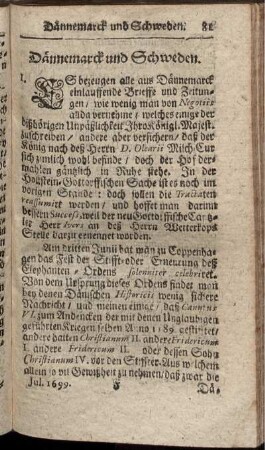 Dännemarck und Schweden. 81
Dännemarck und Schweden.
1. ES bezeugen alle aus Dännemarck
einlauffende Brieffe und Zeitun-
gen / wie wenig man von Negotiis
allda vernehme / welches einige der
bißhörigen Unpäßlichkeit Ihro Königl. Majest.
zuschreiben / andere aber versichern / daß der
König nach deß Herrn D. Olearii Milch-Cur
sich zimlich wohl befinde / doch der Hof der-
mahlen gäntzlich in Ruhe stehe. In der
Hollstein-Gottorffischen Sache ist es noch im
vorigen Stande: doch sollen die Tractaten
reassumirt werden / und hoffet man darinn
bessern Success, weil der neu Gottorffische Cantz-
ler Herr an deß Herrn Wetterkops
Stelle darzu ernennet worden.
Am dritten Junii hat man zu Coppenha-
gen das Fest der Stifft- oder Erneurung deß
Elephanten-Ordens solenniter celebriret.
Von dem Ursprung dieses Ordens findet man
bey denen Dänischen Historicis wenig sichere
Nachricht / und meinen einige / daß Canutus
VI. zum Andencken der mit denen Unglaubigen
geführten Kriegen selben A.no 1189. gestifftet /
andere halten Christianum II. andere Fridericum
I. andere Fridericum II. oder dessen Sohn
Christianum IV. vor den Stiffter. Aus welchem
allein so viel Gewißheit zu nehmen / daß zwar die
Jul. 1699. F Dä-